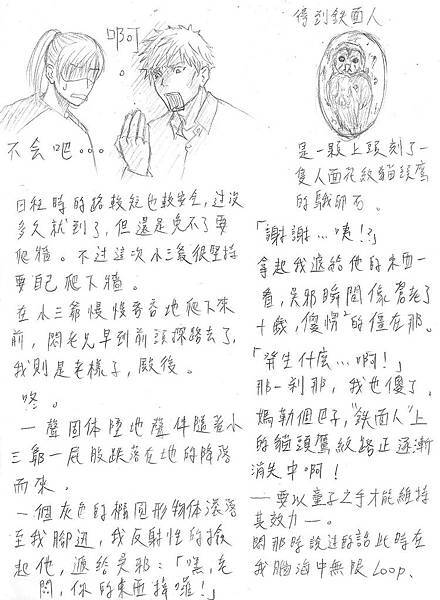 啊
不会吧...
日社時的路較短也較安全,过沒
多久就到了,但還是免不了要
爬牆。不过這次小三爺很堅持
要自己爬下牆。
在小三爺慢慢吞吞地爬下來
前,悶老兄早到前頭探路去了,
我則是老樣子,殿後。
咚。
一聲固体墜地聲伴隨著小
三爺一屁股跌落在地的降落
而來。
一個灰色的橢圓形物体滚落
至我腳边,我反射性的撿
起他,遞給吳邪:「嘿,老
闆,你的東西掉囉!」
得到鉄面人
是一顆上頭刻了一
隻人面花紋貓頭鷹
的鵝卵石。
「謝謝...咦!?」
拿起我遞給他的東西一
看,吳邪瞬間像蒼老了
十歲,傻愣的僵在那。
「發生什麼...啊!」
那一刹那,我也傻了,
媽勒個巴子,"鉄面人"上
的貓頭鷹紋路正逐漸
消失中啊!
—要以童子之手才能維持
其效力—。
悶那時說过的話此時在
我腦海中無限Loop、